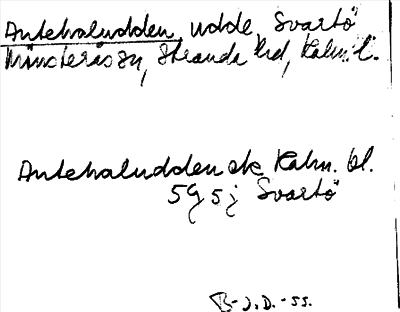 Antehaludden, udde, Svartö
Mönsterås sn, Stranda hd, Kalm. l.
Antehaludden ek Kalm. bl.
5G 5j Svartö
B-J.D.-55.